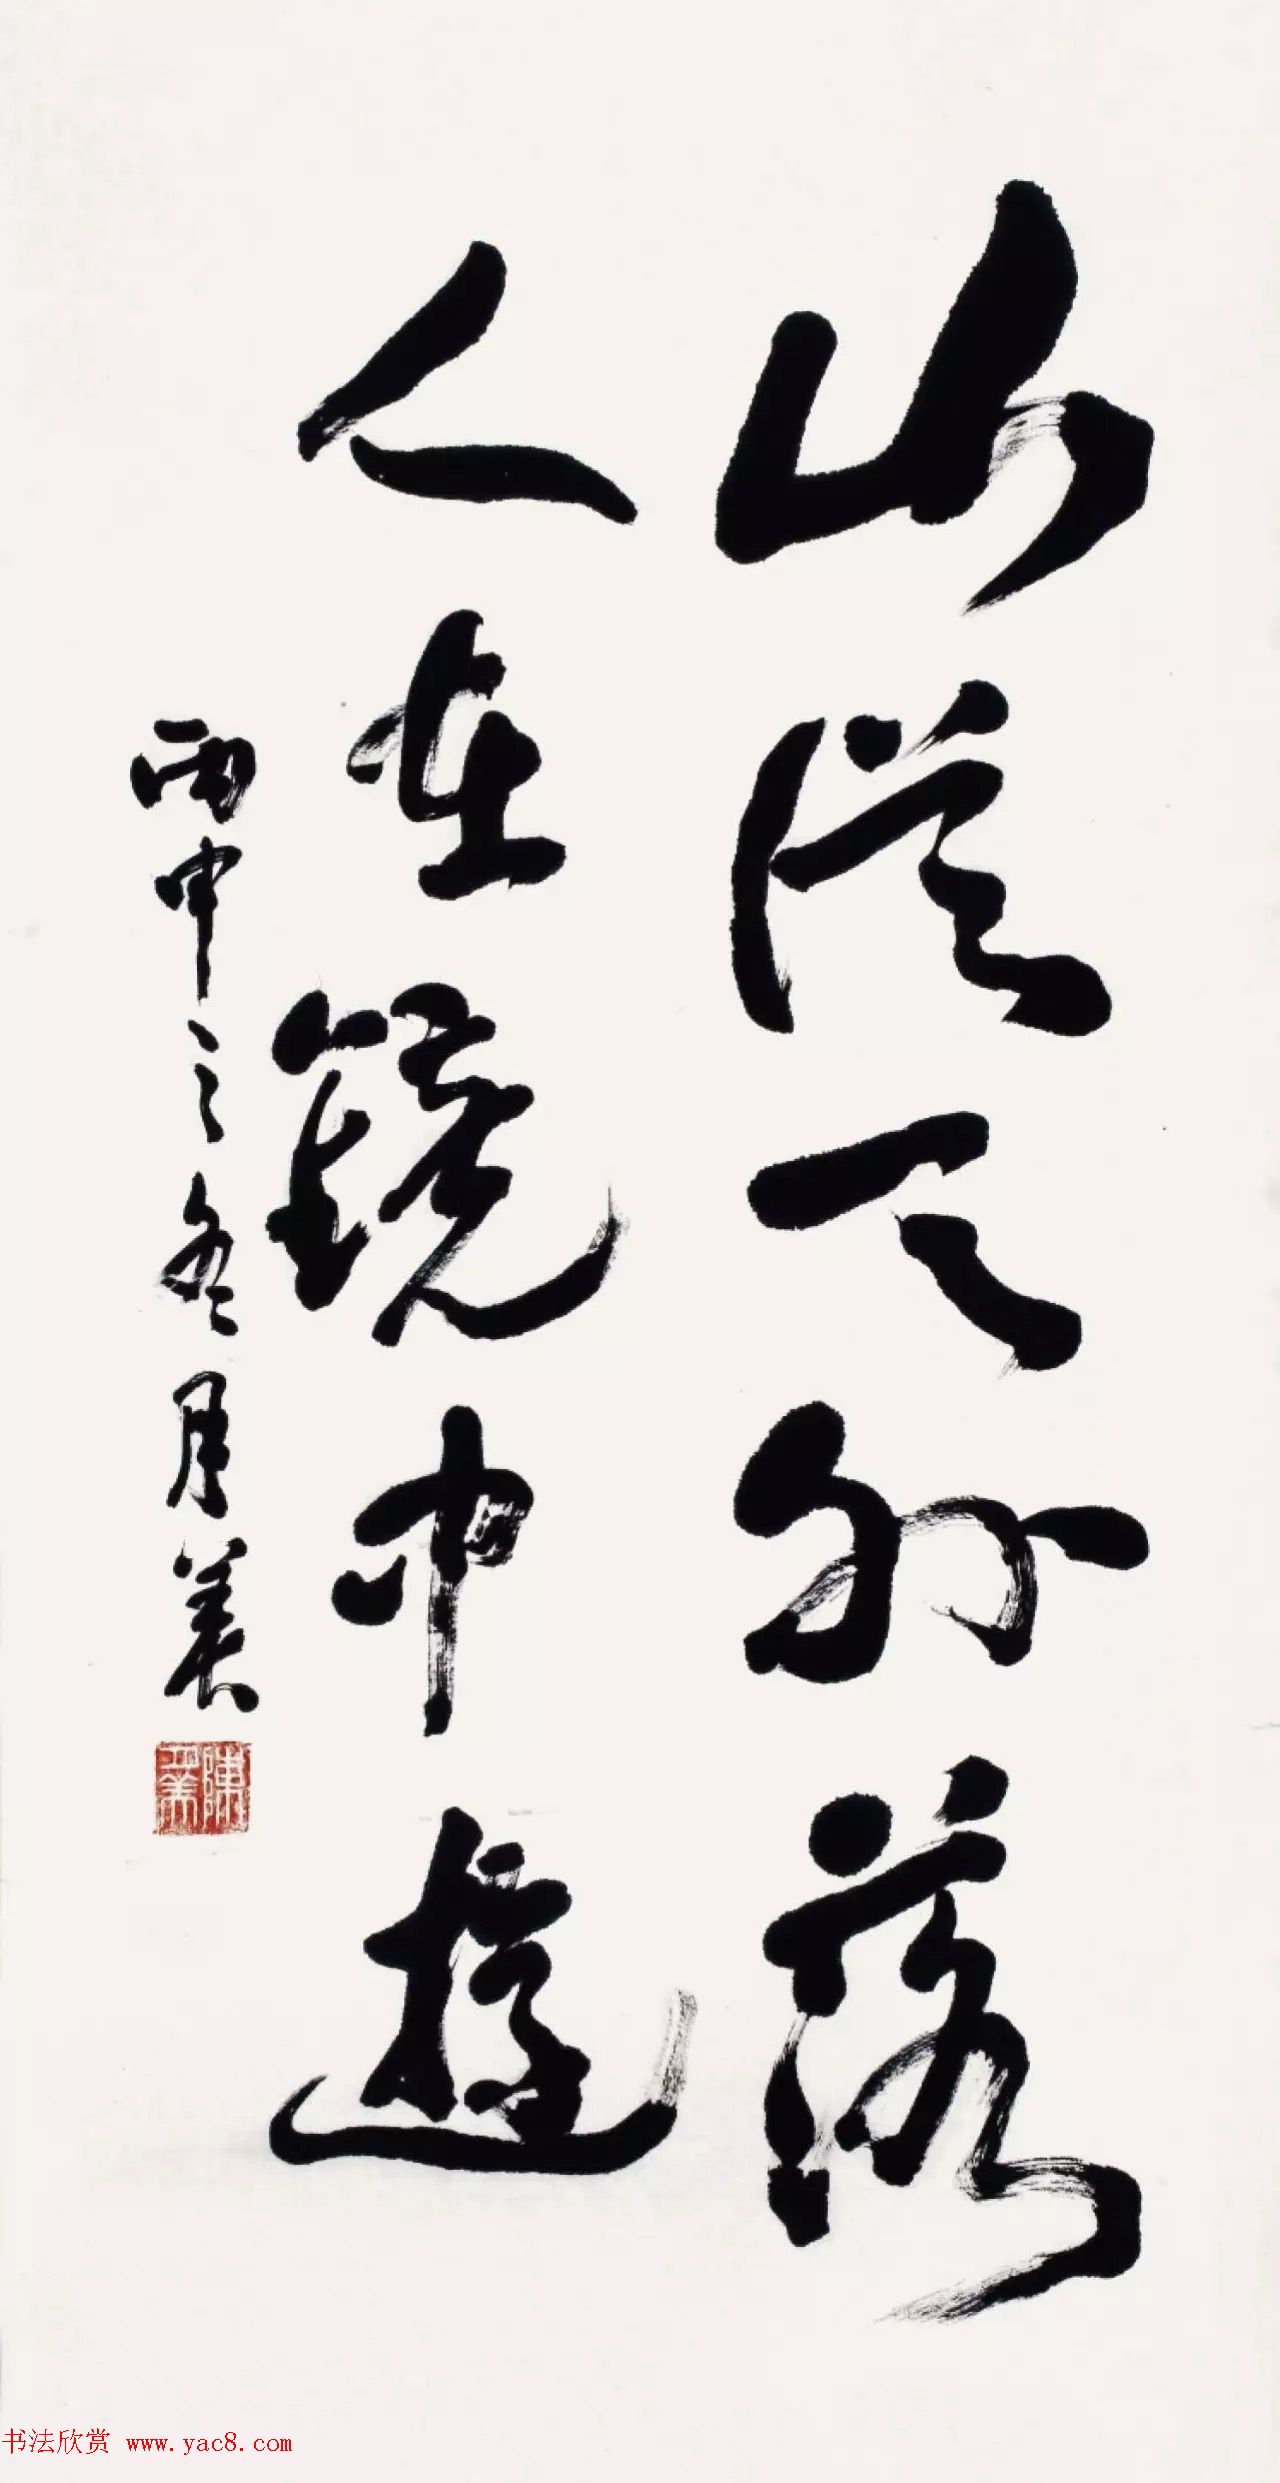 山從天外落
人在鏡中遊
丙申之冬月美
书法欣赏 www.yac8.com